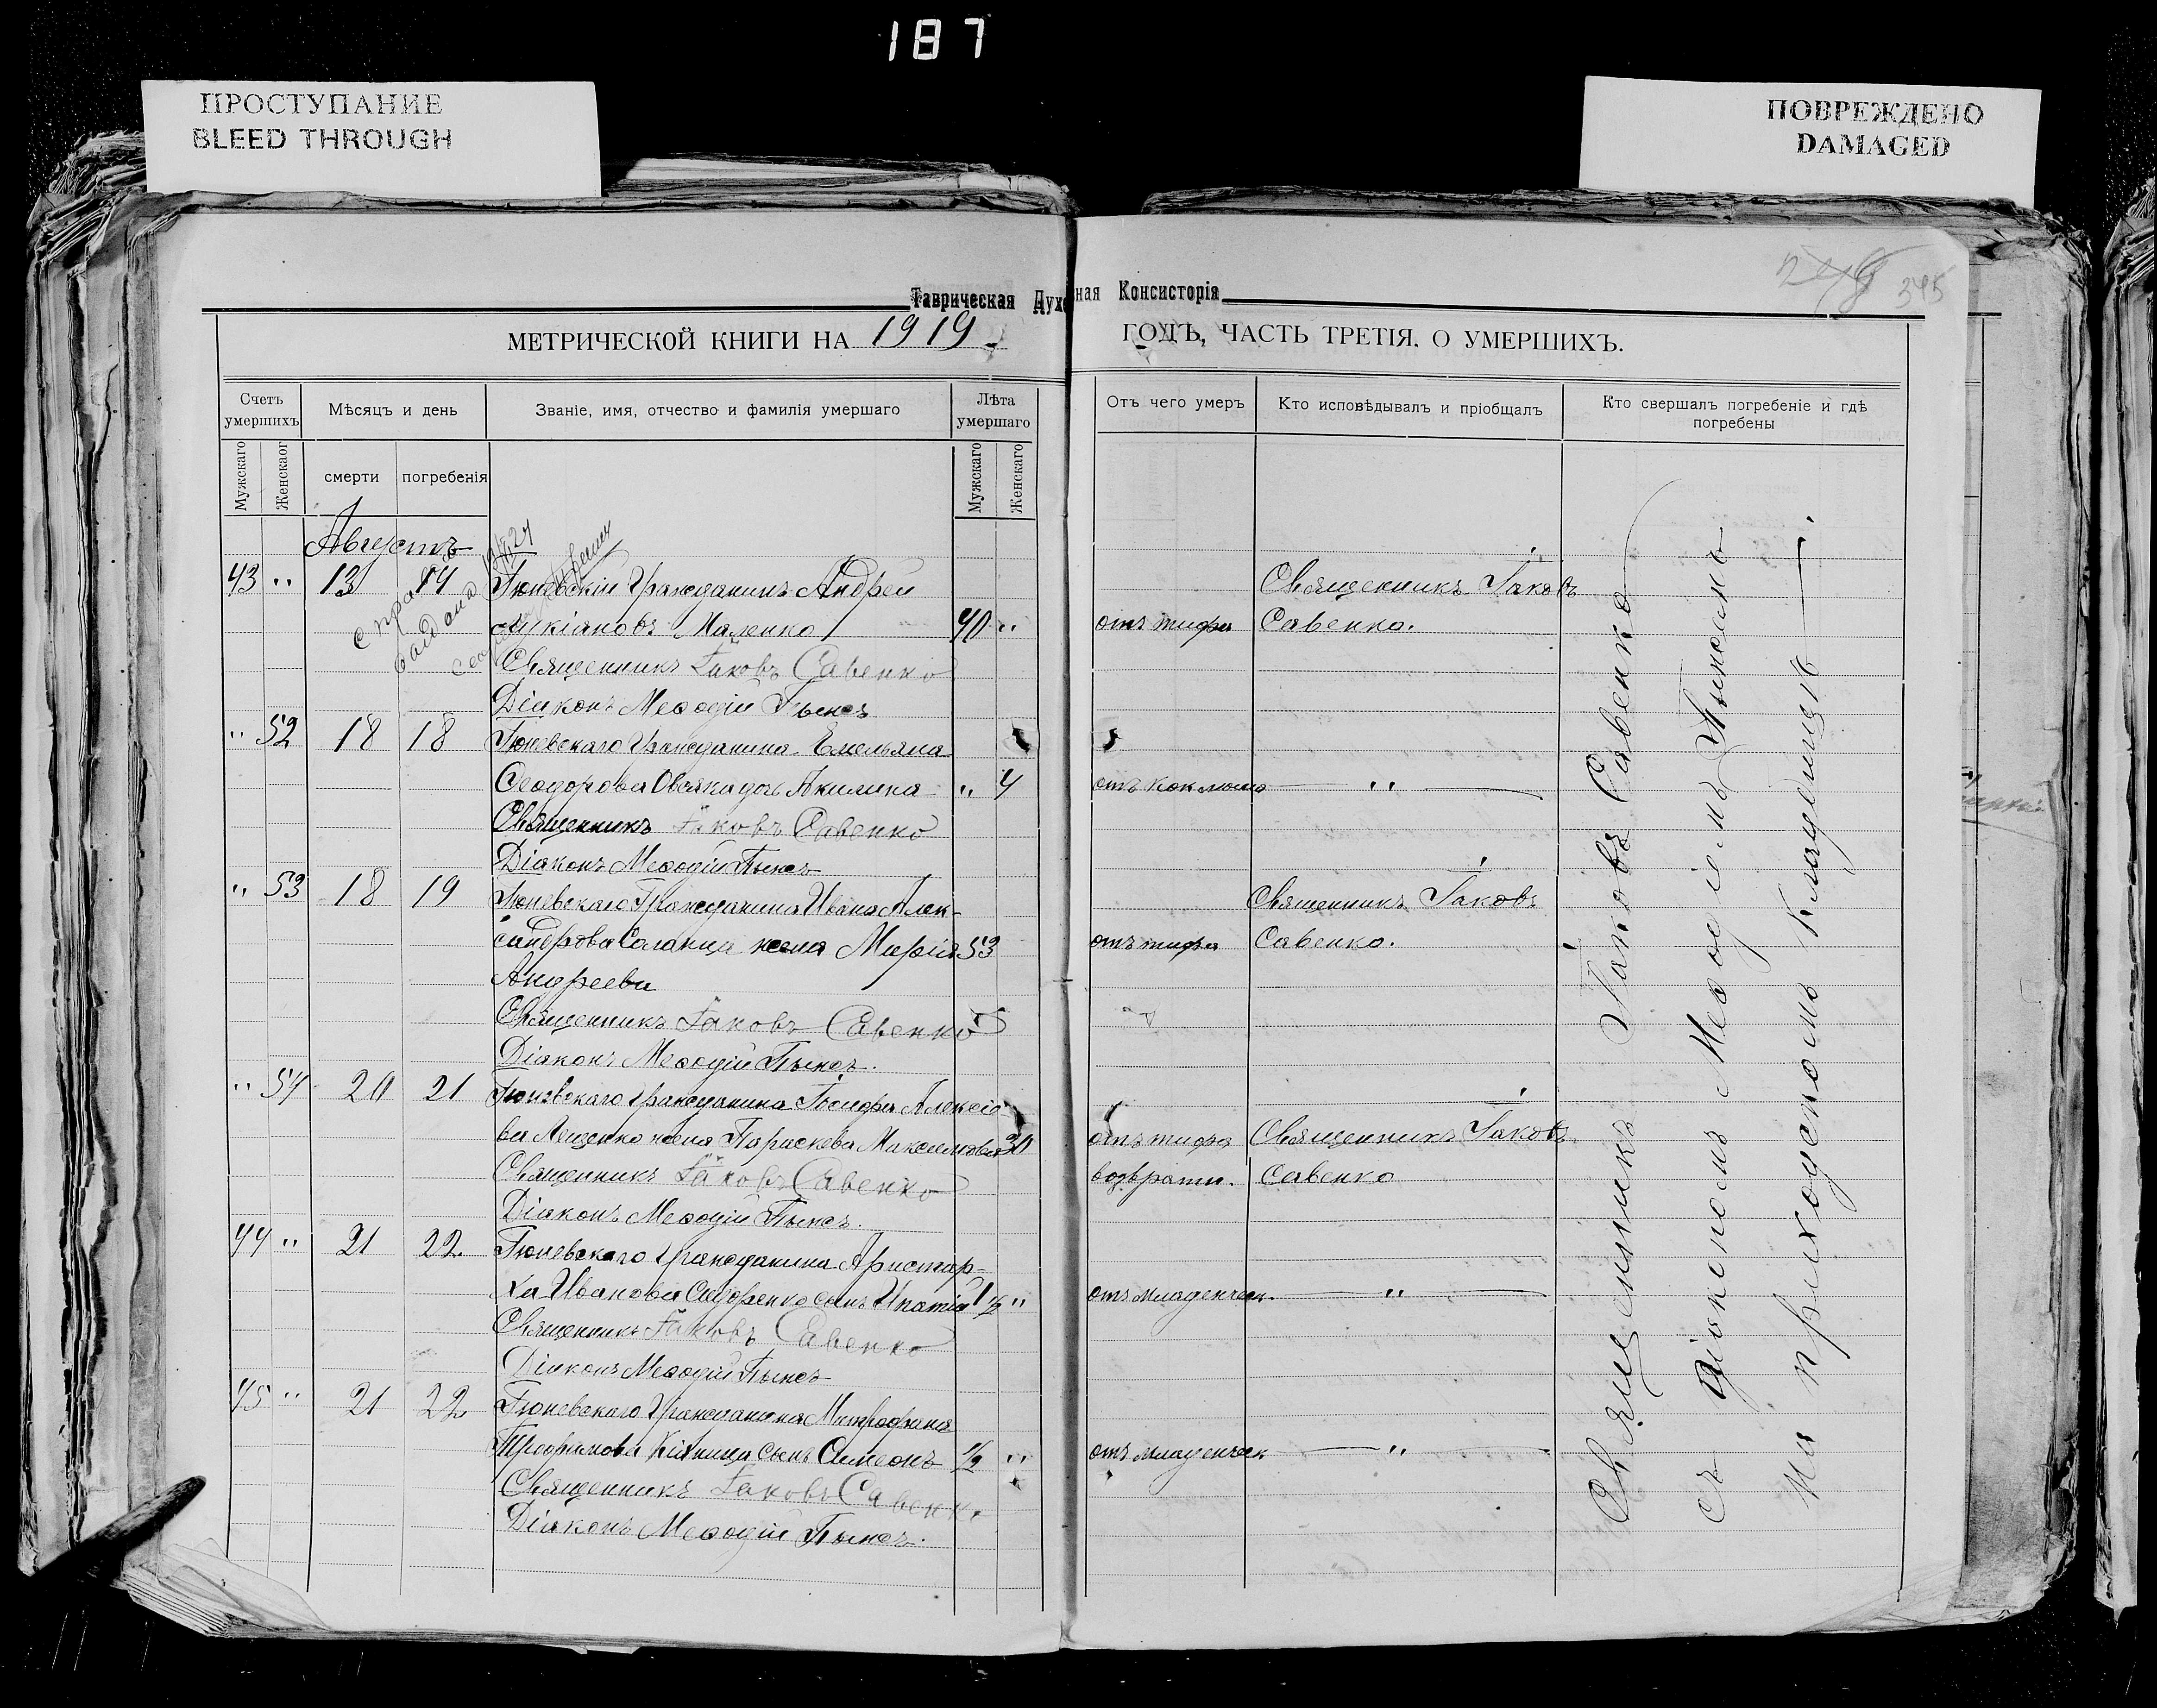 187
ПРОСТУПАНИЕ
BLEED THROUGH
ПОВРЕЖДЕНО
DAMAGED
345
Таврическая Духовная Консисторія
МЕТРИЧЕСКОЙ КНИГИ НА 1919 ГОДЪ, ЧАСТЬ ТРЕТІЯ. О УМЕРШИХЪ.
Счетъ умершихъ
Мѣсяцъ и день
Званіе, имя, отчество и фамилія умершаго
Лѣта умершаго
Отъ чего умеръ
Кто исповѣдывалъ и пріобщалъ
Кто свершалъ погребеніе и гдѣ погребены
Мужскаго
Женскаог
смерти
погребенія
Мужскаго
Женскаго
Августъ
43 " 13 14 Тюневскій Гражданинъ Андрей Священникъ Іаковъ
Лукіановъ Маленко 40 " отъ тифа Савенко.
Священникъ Іаковъ Савенко
Діаконъ Меѳодій
" 52 18 18 Тюневскаго Гражданина Емельяна
Ѳеодорова дочь Акилина " 4 отъ коклюша "
Священникъ Іаковъ Савенко
Діаконъ Меѳодій
" 53 18 19 Тюневскаго Гражданина Ивана Алек- Священникъ Іаковъ
сандрова жена Марія 53 отъ тифа Савенко.
Андреева
Священникъ Іаковъ Савенко
Діаконъ Меѳодій
" 54 20 21 Тюневскаго Гражданина Іосифа Алексіе-
ва Лещенко жена Параскева Максимова 30 отъ тифа Священникъ Іаковъ
возврати. Савенко
Священникъ Іаковъ Савенко
Діаконъ Меѳодій
44 " 21 22 Тюневскаго Гражданина Аристар-
ха Иванова Сидоренко сынъ Ипатій 1 1/2 " отъ младенческ. "
Священникъ Іаковъ Савенко
Діаконъ Меѳодій
45 " 21 22 Тюневскаго Гражданина Митрофана
Трофимова сынъ Симеонъ 1/2 " отъ младенческ "
Священникъ Іаковъ Савенко
Діаконъ Меѳодій
Священникъ Іаковъ Савенко
съ діакономъ Меѳодіемъ
на приходскомъ кладбищѣ